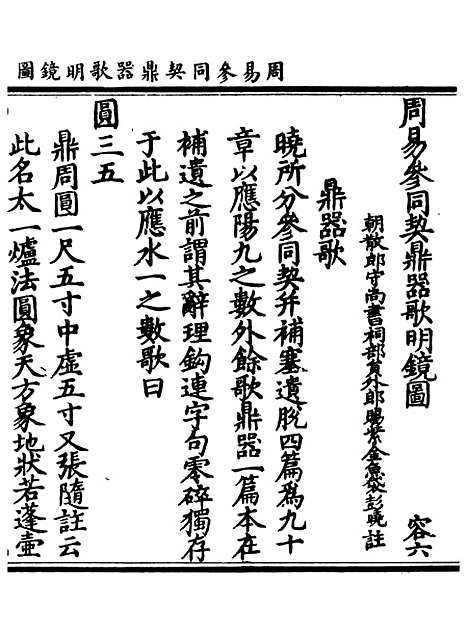 周易參同契鼎器歌明鏡圖
周易參同契鼎器歌明鏡圖 容六
朝散郎守尚書祠部員外郎賜紫金魚袋彭曉註
鼎器歌
曉所分參同契并補塞遺脱四篇爲九十
章以應陽九之數外餘歌鼎器一篇本在
補遺之前謂其辭理鈎連字句零碎獨存
于此以應水一之數歌曰
圓三五
鼎周圓一尺五寸中虛五寸又張隨註云
此名太一爐法圓象天方象地狀若蓬壺